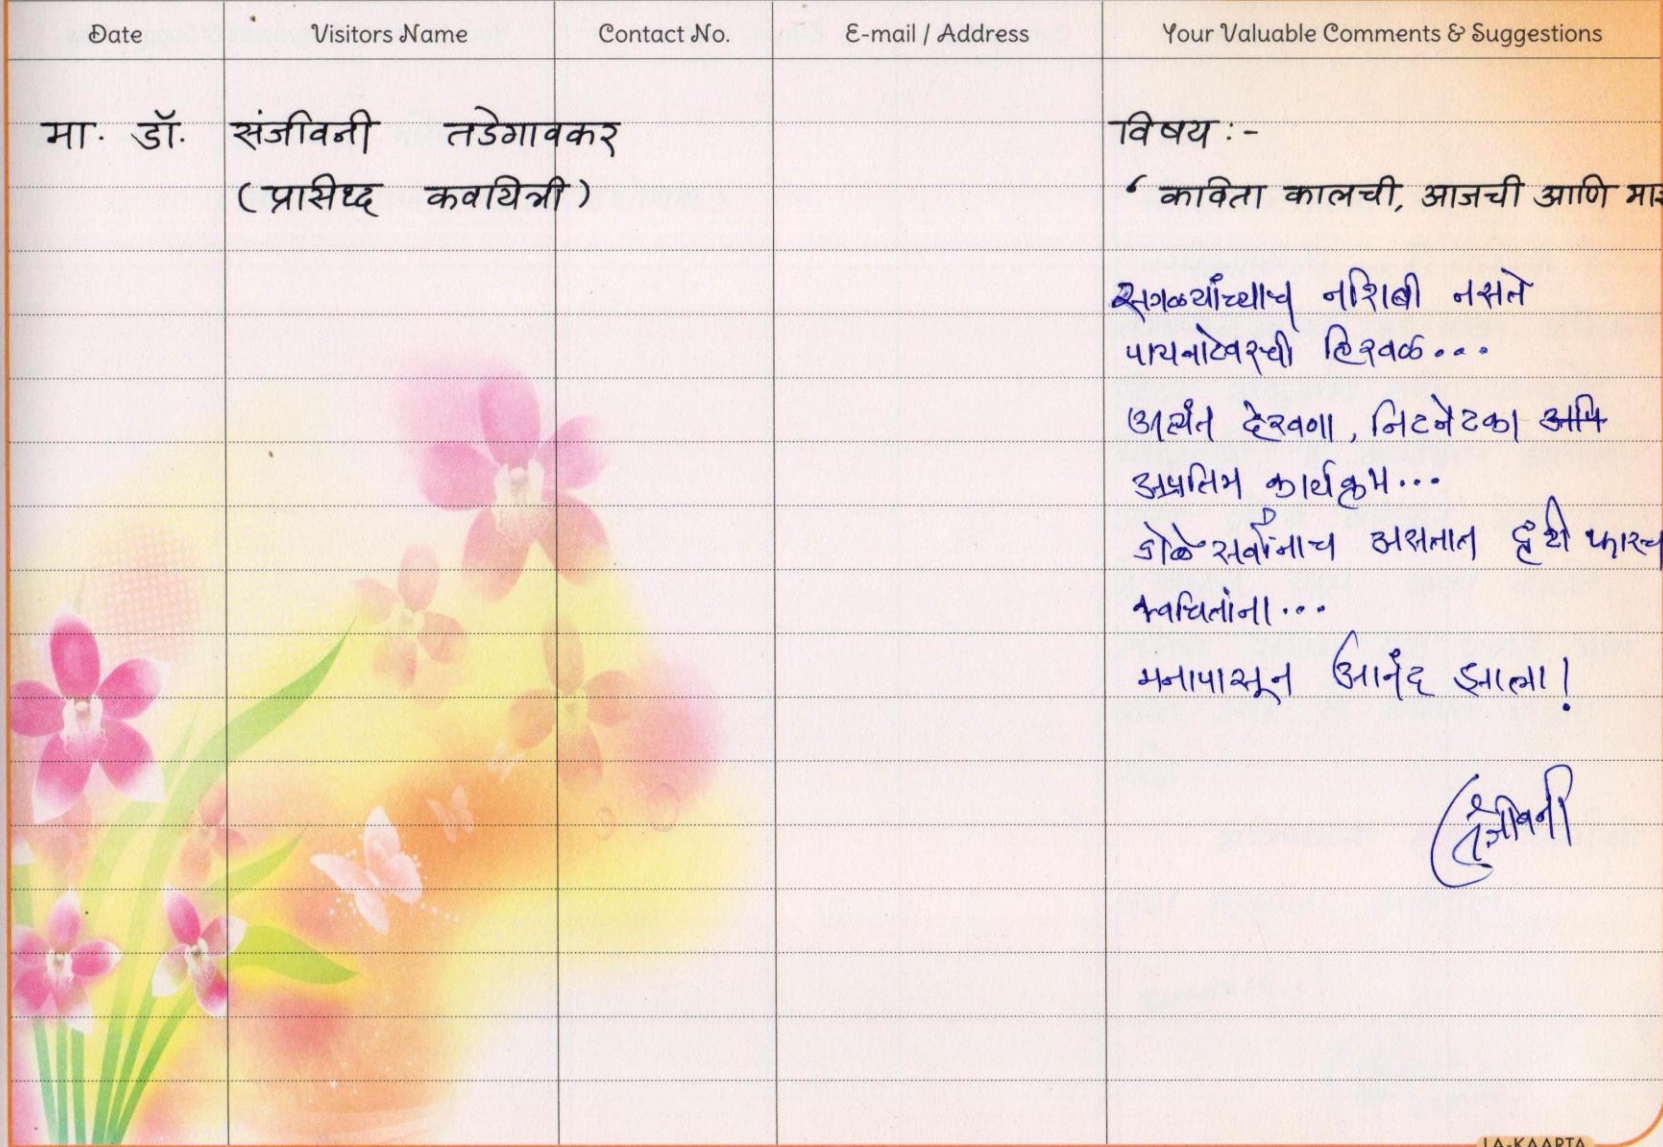 Date Visitors Name Contact No. E-mail / Address Your Valuable Comments & Suggestions
मा. डॉ. संजीवनी तडेगावकर
(प्रसिध्द कवयित्री)
विषय :-
‘ कविता कालची, आजची आणि माझ
सगळ्यांच्याच नशिबी नसते
पायवाटेवरची हिरवळ...
अत्यंत देखणा, निटनेटका आणि
अप्रतिम कार्यक्रम...
डोळे सर्वांनाच असतात दृष्टी फारच
क्वचितांना...
मनापासून आनंद झाला!
संजीवनी
LA-KAARTA